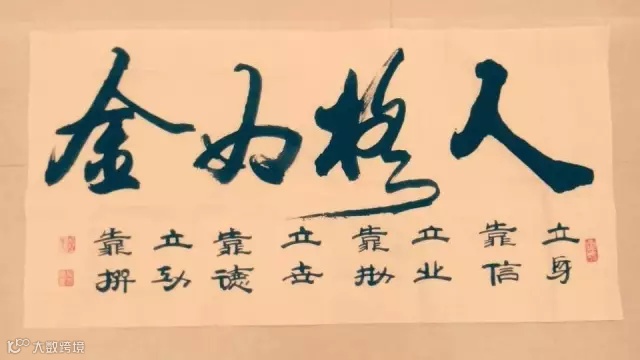 人格如金
立身
靠信
立业
靠勤
立世
靠德
立功
靠拼
大数跨境